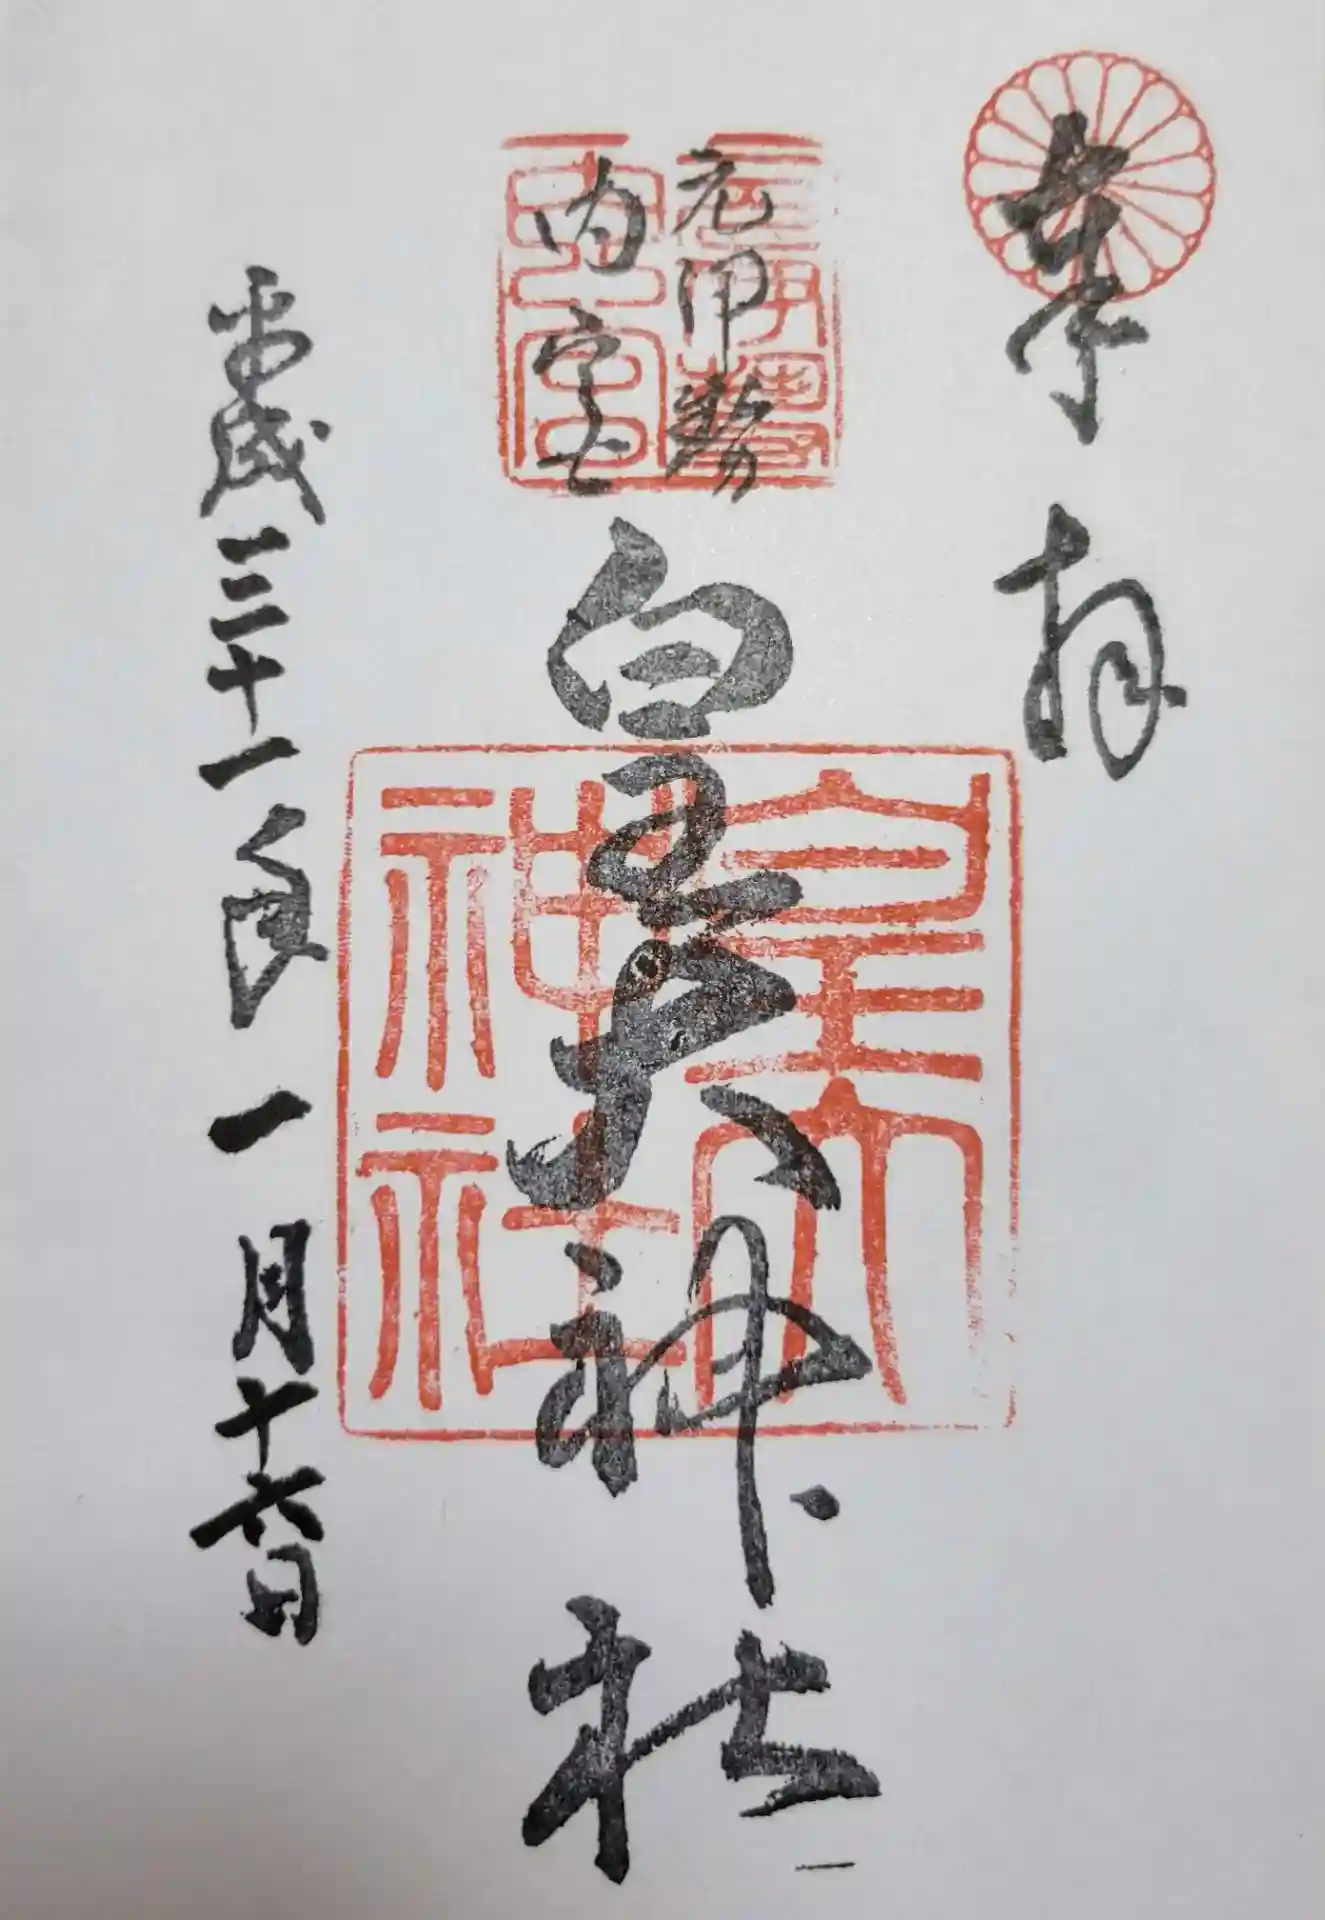 奉拝
元伊勢
内宮
皇大神社
平成三十一年一月十六日
元伊勢
内宮
皇大
神社